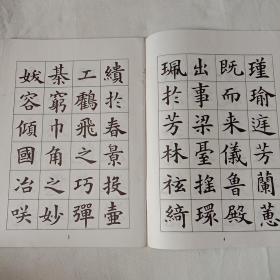 瑾瑜庭芳蘭蕙
既而来儀魯殿
出事梁臺搖環
珮於芳林袨綺
繢於春景投壺
工鸖飛之巧彈
棊窮巾角之妙
妖容傾國冶咲